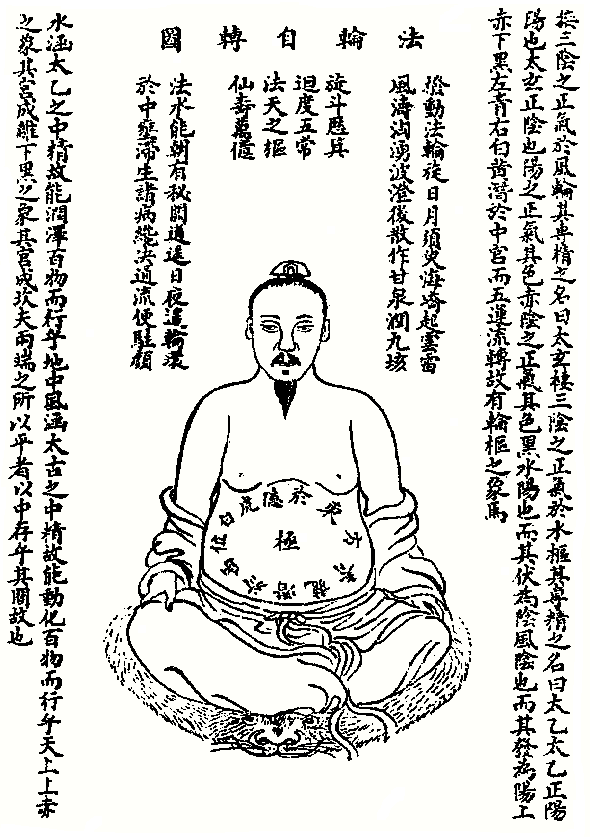 法輪自轉圖
接三陰之正氣於風輪其專精之名曰太玄棲三陰之正氣於水樞其專精之名曰太乙太乙正陽
陽也太玄正陰也陽之正氣其色赤陰之正氣其色黑水陽也而其伏為陰風陰也而其發為陽上
赤下黑左青右白黃潛於中宮而五運流轉故有輪樞之象焉
撥動法輪旋日月須臾海嶠起雲雷
風濤洶湧波澄後散作甘泉潤九垓
旋斗歷箕
迴度五常
法天之樞
仙壽萬億
法水能朝有秘關逍遙日夜遣輪環
於中壅滯生諸病纔決通流便駐顏
白虎隱於東方
龍潛於酉位
極
水涵太乙之中精故能潤澤百物而行乎地中風涵太古之中精故能動化百物而行乎天上上赤
之象其宮成離下黑之象其宮成坎夫兩端之所以平者以中存乎其間故也